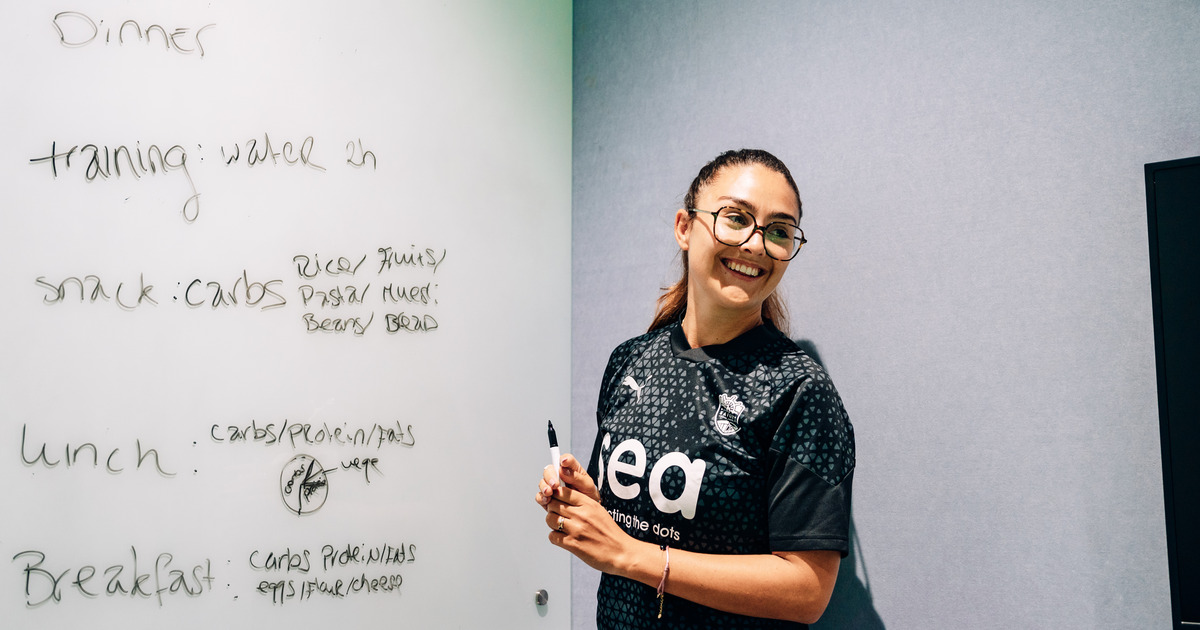 Dinner
training: water 2h
snack: carbs
Rice/ Fruits/
Pasta/ Muesi
Beans/ Bread
Lunch : carbs/protein/Fats
vege
Breakfast : carbs protein/Fats
eggs/ /cheese
sea
sting the dots